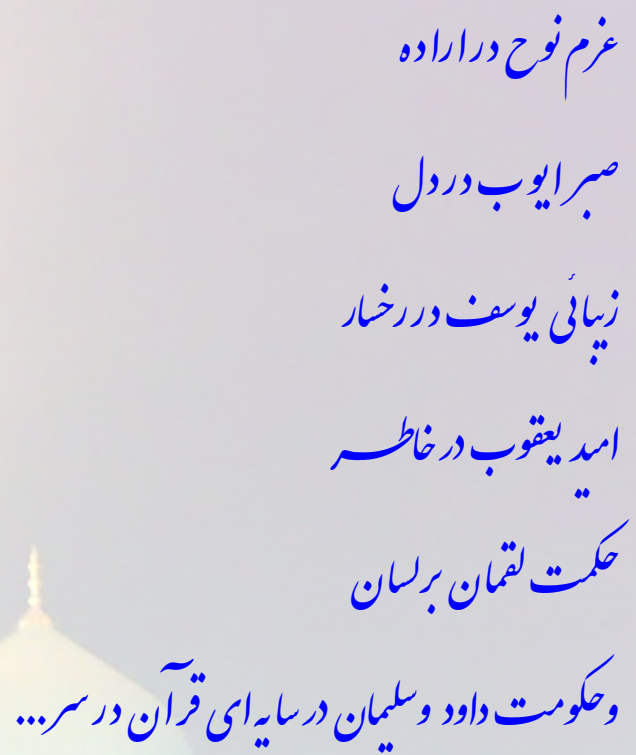 عزم نوح در اراده
صبر ایوب در دل
زیبائی یوسف در رخسار
امید یعقوب در خاطر
حکمت لقمان بر لسان
و حکومت داود و سلیمان در سایه ای قرآن در سر...